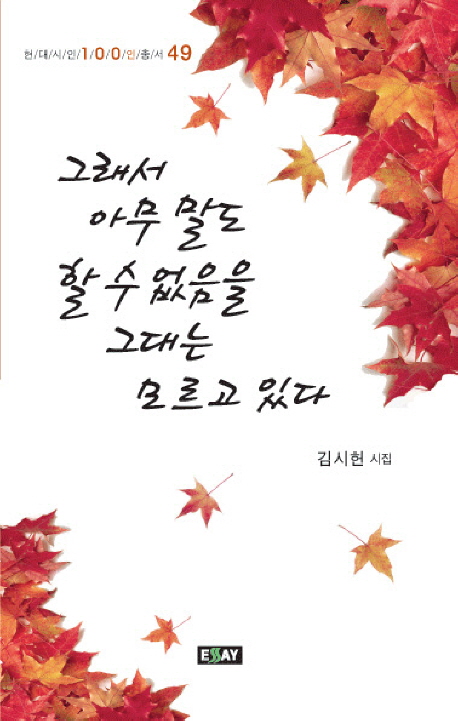 현/대/시/인/1/0/0/인/총/서 49
그래서
아무 말도
할 수 없음을
그대는
모르고 있다
김시헌 시집
ESSAY